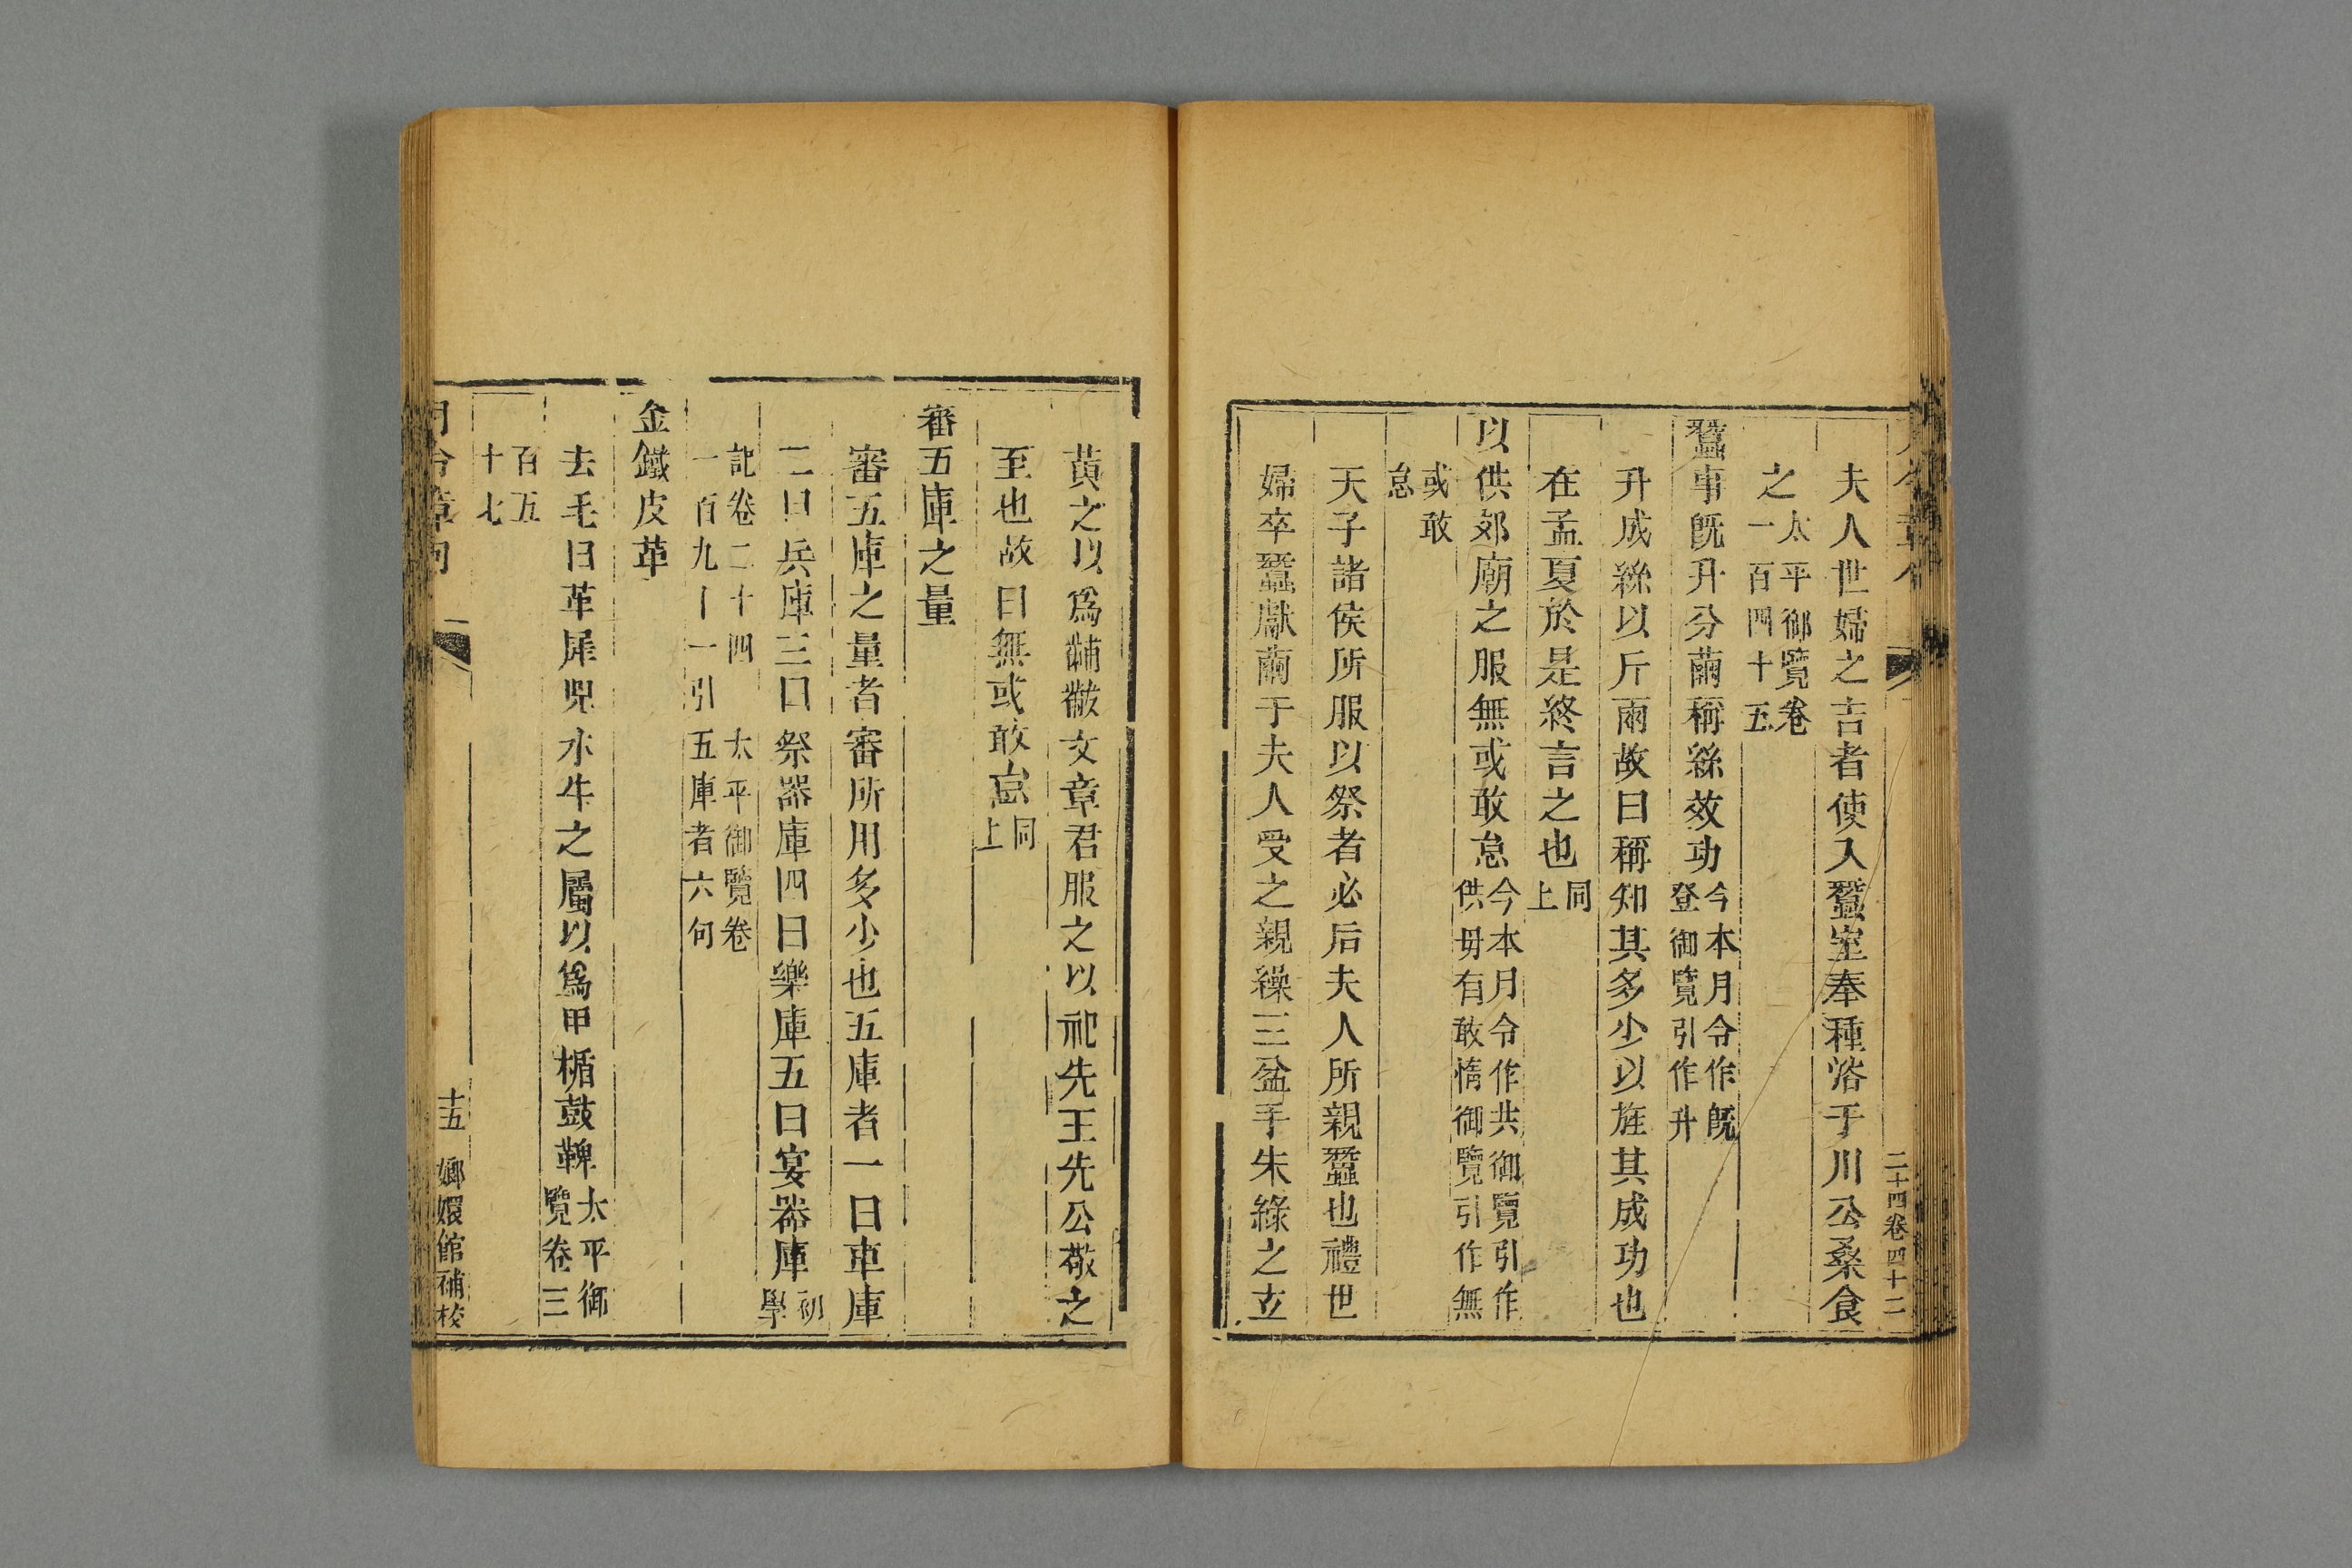 二十四卷四十二
夫人世婦之吉者使入蠶室奉種浴于川公桑食
之太平御覽卷一百四十五
蠶事既升分繭稱絲效功今本月令作既登御覽引作升
升成絲以斤兩故曰稱知其多少以旌其成功也
在孟夏於是終言之也同上
以供郊廟之服無或敢怠今本月令作共御覽引作供毋有敢惰御覽引作無
或敢怠
天子諸侯所服以祭者必后夫人所親蠶也禮世
婦卒蠶獻繭于夫人受之親繰三盆手朱綠之玄
黃之以爲黼黻文章君服之以祀先王先公敬之
至也故曰無或敢怠同上
審五庫之量
審五庫之量者審所用多少也五庫者一曰車庫
二曰兵庫三曰祭器庫四曰樂庫五曰宴器庫初學
記卷二十四 太平御覽卷一百九十一引五庫者六句
金鐵皮革
去毛曰革犀兕水牛之屬以爲甲楯鼓鞞太平御覽卷三
百五十七
月令章句 十五 嫏嬛館補校